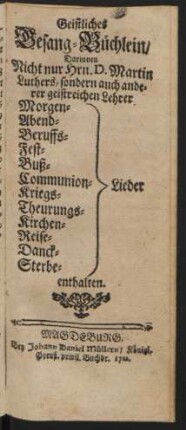 Geistliches
Gesang-Büchlein/
Darinnen
Nicht nur Hrn. D. Martin
Luthers/ sondern auch ande-
rer geistreichen Lehrer
Morgen-
Abend-
Beruffs-
Fest-
Buß-
Communion-
Kriegs-
Theurungs-
Kirchen-
Reise-
Danck-
Sterbe-
Lieder
enthalten.
MAGDEBURG,
Bey Johann Daniel Müllern/ Königl.
Preuß. privil. Buchdr.